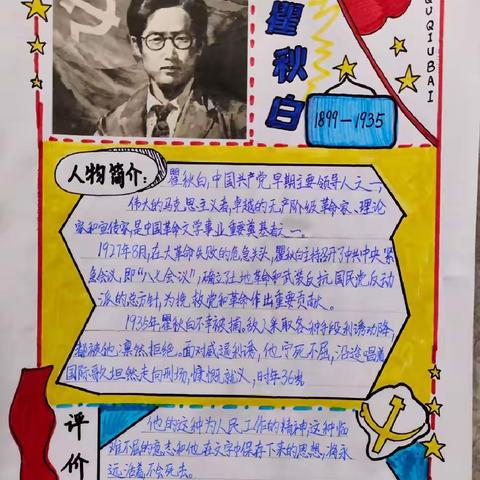 瞿秋白
QUQIUBAI
1899—1935
人物简介:
瞿秋白,中国共产党早期主要领导人之一,
伟大的马克思主义者,卓越的无产阶级革命家、理论
家和宣传家,是中国革命文学事业重要奠基者之一。
1927年8月,在大革命失败的危急关头,瞿秋白主持召开了中共中央紧
急会议,即“八七会议”,确立了土地革命和武装反抗国民党反动
派的总方针,为挽救党和革命作出重要贡献。
1935年瞿秋白不幸被捕,敌人采取各种手段利诱劝降,
都被他凛然拒绝。面对威逼利诱,他宁死不屈,沿途唱着
国际歌坦然走向刑场,慷慨就义,时年36岁
评价
他的这种为人民工作的精神,这种临
难不屈的意志和他在文字中保存下来的思想,将永
远活着,不会死去。